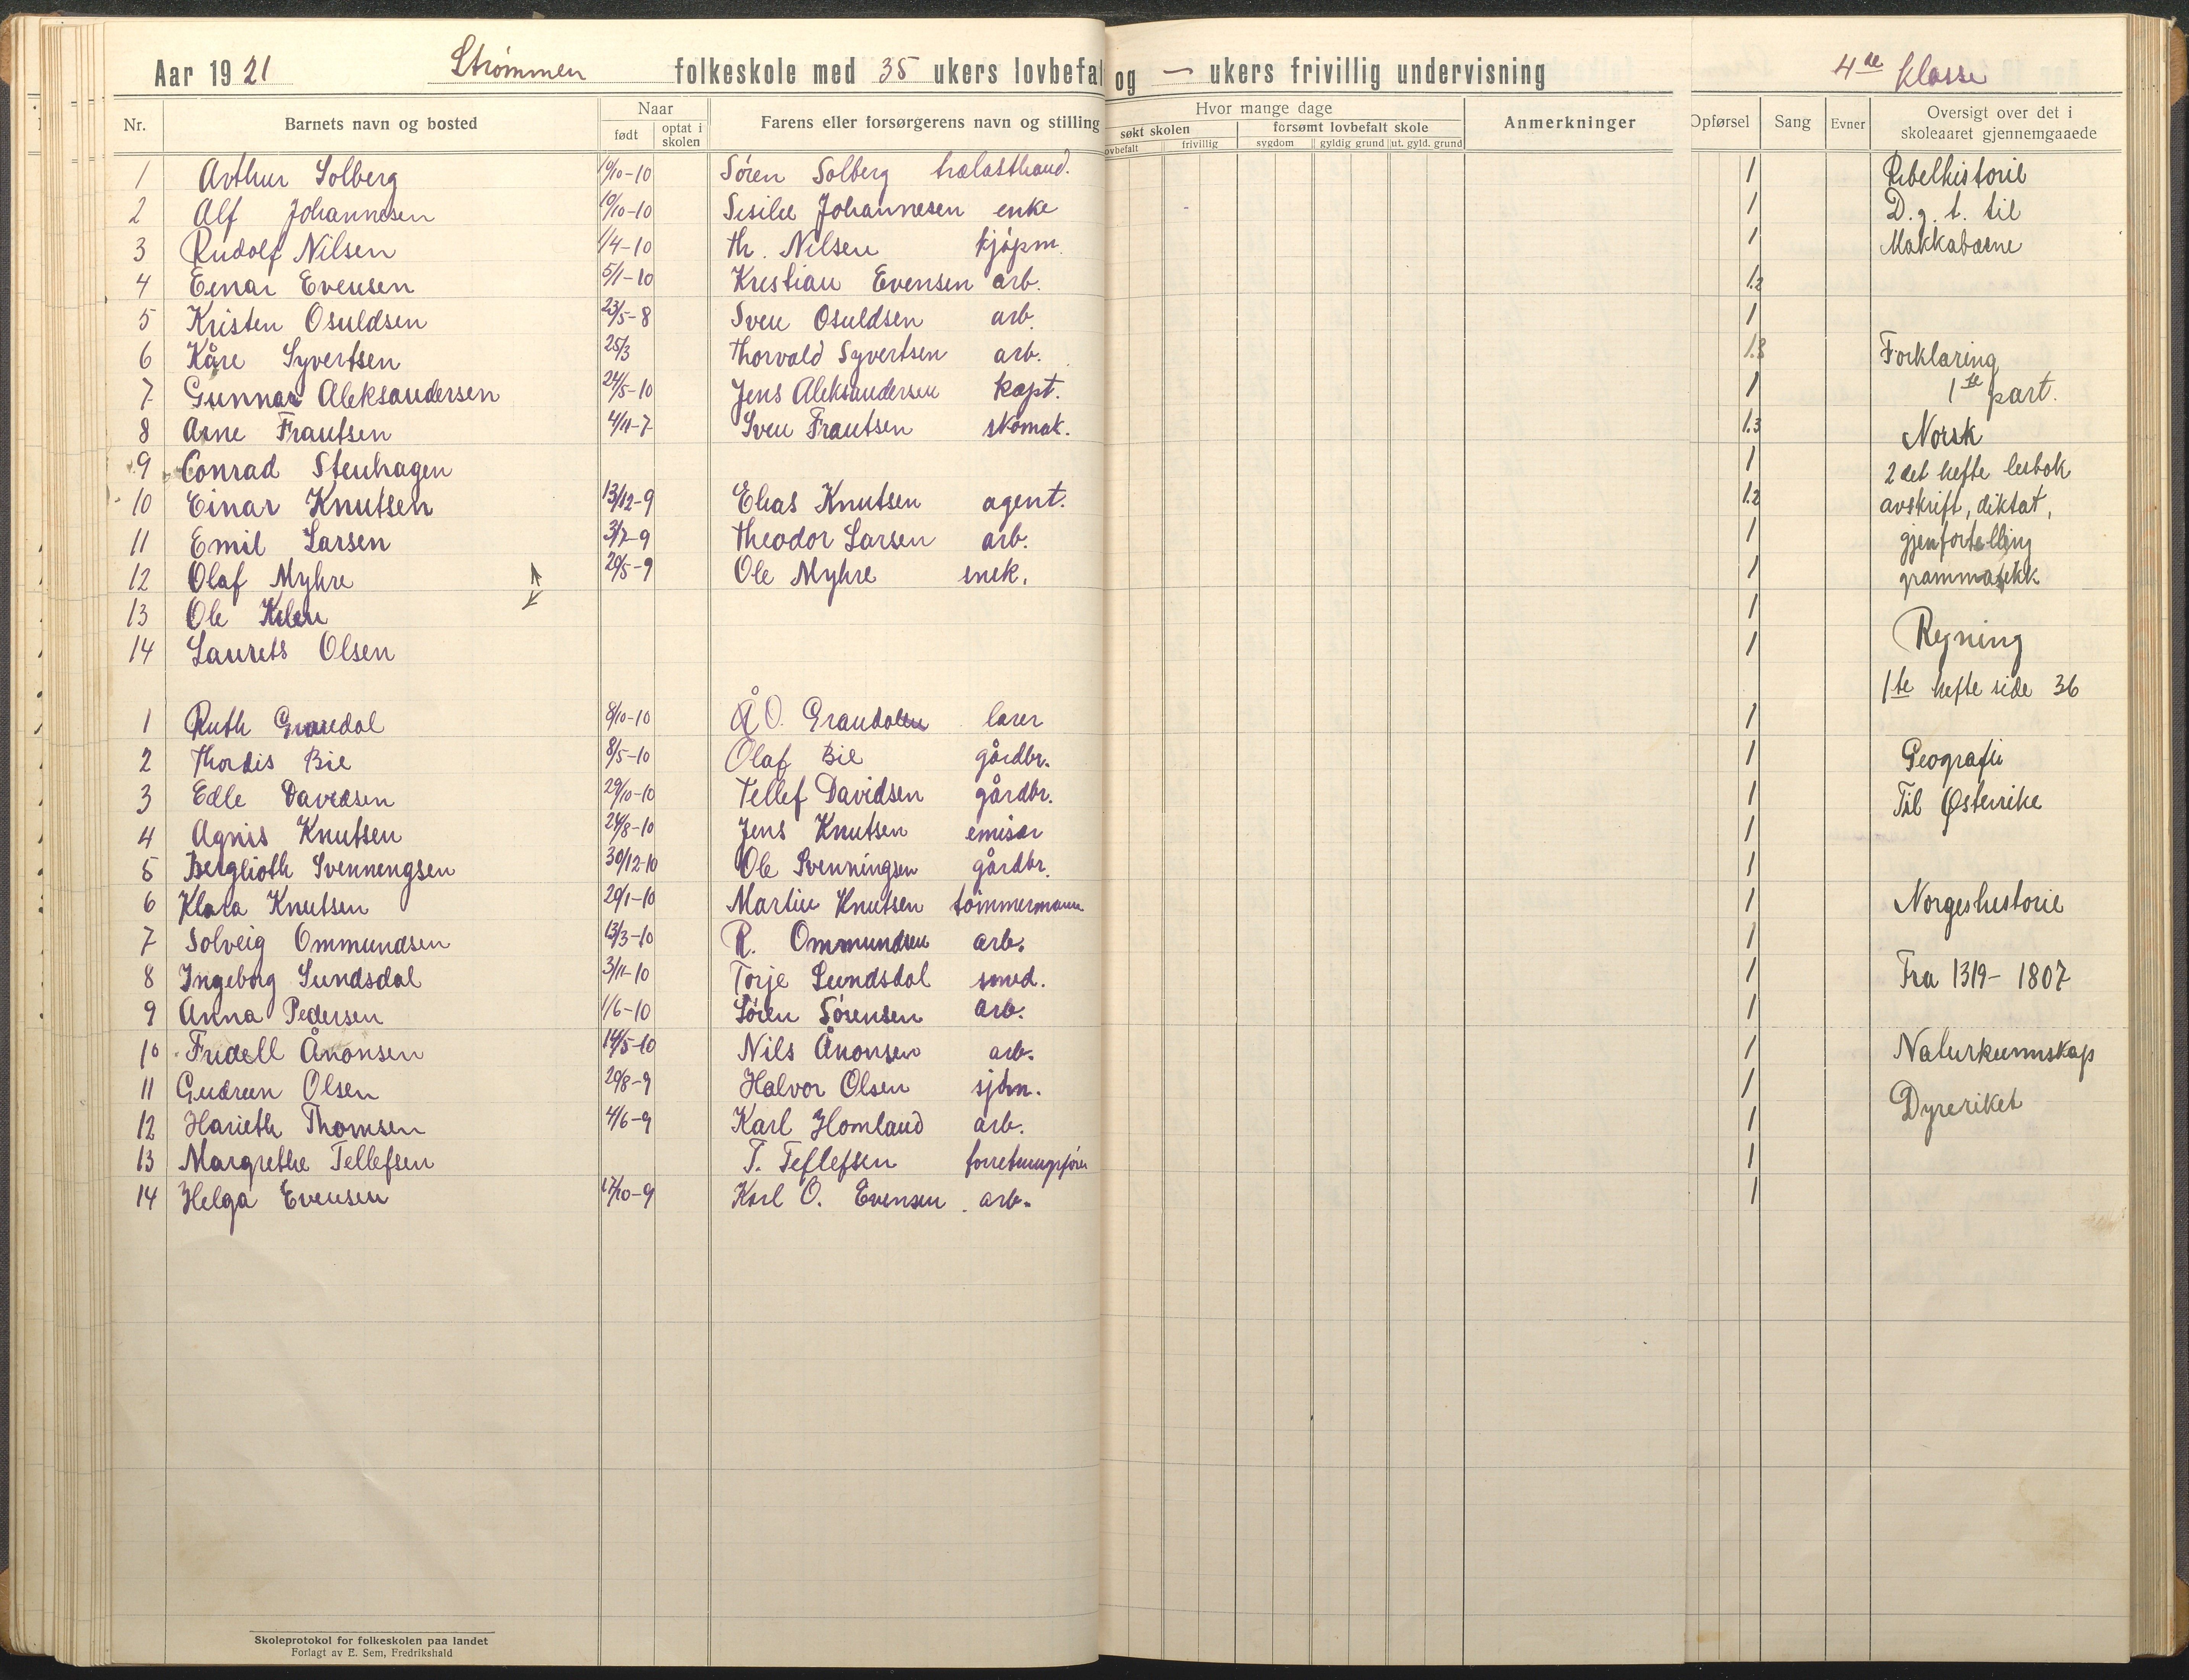 Aar 1921 Strømmen folkeskole med 35 ukers lovbefal og — ukers frivillig undervisning 4de klasse
Nr. Barnets navn og bosted Naar født optat i skolen Farens eller forsørgerens navn og stilling Hvor mange dage søkt skolen lovbefalt frivillig forsømt lovbefalt skole sygdom gyldig grund ut. gyld. grund Anmerkninger Opførsel Sang Evner Oversigt over det i skoleaaret gjennemgaaede
1 Arthur Solberg 10/10-10 Sören Solberg trælasthand. 1 Bibelhistorie
2 Alf Johannesen 10/10-10 Sisilie Johannesen enke 1 D.g.t. til
3 Rudolf Nilsen 1/4-10 Th. Nilsen kjöpm. 1 Makkabæerne
4 Einar Evensen 5/1-10 Kristian Evensen arb. 1.2
5 Kristen Osuldsen 23/5-8 Sven Osuldsen arb. 1
6 Kåre Syvertsen 25/3 Thorvald Syvertsen arb. 1.3 Forklaring
7 Gunnar Aleksandersen 24/5-10 Jens Aleksandersen kapt. 1 1ste part.
8 Arne Frantsen 4/11-7 Sven Frantsen skomak. 1.3 Norsk
9 Conrad Stenhagen 1 2det hefte lesbok
10 Einar Knutsen 13/12-9 Elias Knutsen agent. 1.2 avskrift, diktat,
11 Emil Larsen 3/7-9 Theodor Larsen arb. 1 gjenfortelling
12 Olaf Myhre 20/5-9 Ole Myhre snek. 1 grammatikk
13 Ole Kilen 1
14 Laurits Olsen 1 Regning
1te hefte side 36
1 Ruth Grandal 8/10-10 Å O. Grandalen lærer 1
2 Thordis Bie 8/5-10 Olaf Bie gårdbr. 1 Geografi
3 Edle Davidsen 29/10-10 Tellef Davidsen gårdbr. 1 Til Østerrike
4 Agnis Knutsen 24/8-10 Jens Knutsen emisær 1
5 Berglioth Svenningsen 30/12-10 Ole Svenningsen gårdbr. 1
6 Klara Knutsen 20/1-10 Martin Knutsen tömmermann 1 Norgeshistorie
7 Solveig Ommundsen 13/3-10 R. Ommundsen arb. 1
8 Ingeborg Sundsdal 3/11-10 Torje Sundsdal smed. 1 Fra 1319-1807
9 Anna Pedersen 1/6-10 Sören Sörensen arb. 1
10 Fridell Ånonsen 14/5-10 Nils Ånonsen arb. 1 Naturkunnskap
11 Gudrun Olsen 20/8-9 Halvor Olsen sjöm. 1 Dyreriket
12 Harieth Thomsen 4/6-9 Karl Homland arb. 1
13 Margrethe Tellefsen T. Teflefsen forretningsförer 1
14 Helga Evensen 17/10-9 Karl O. Evensen arb. 1
Skoleprotokol for folkeskolen paa landet
Forlagt av E. Sem, Fredrikshald